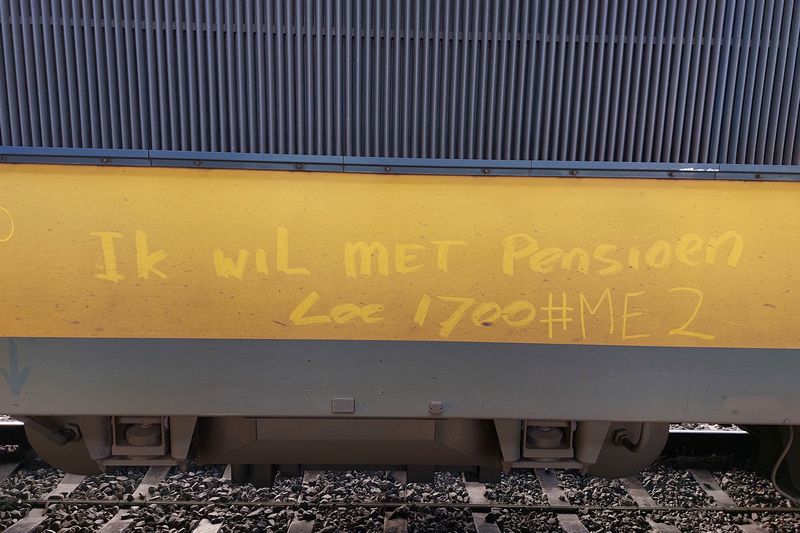 Ik wil met Pensioen
Loc 1700 #ME 2